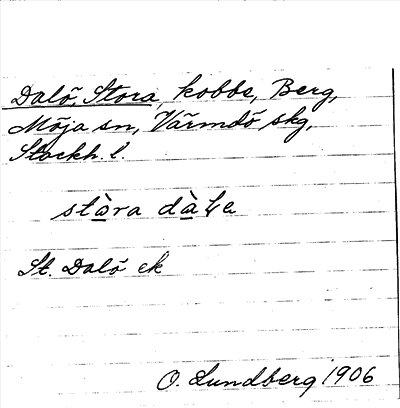 Dalö, Stora, kobbe, Berg,
Möja sn, Värmdö skg,
Stockh. l.
stòra dàłe
St. Dalö ek
O. Lundberg 1906